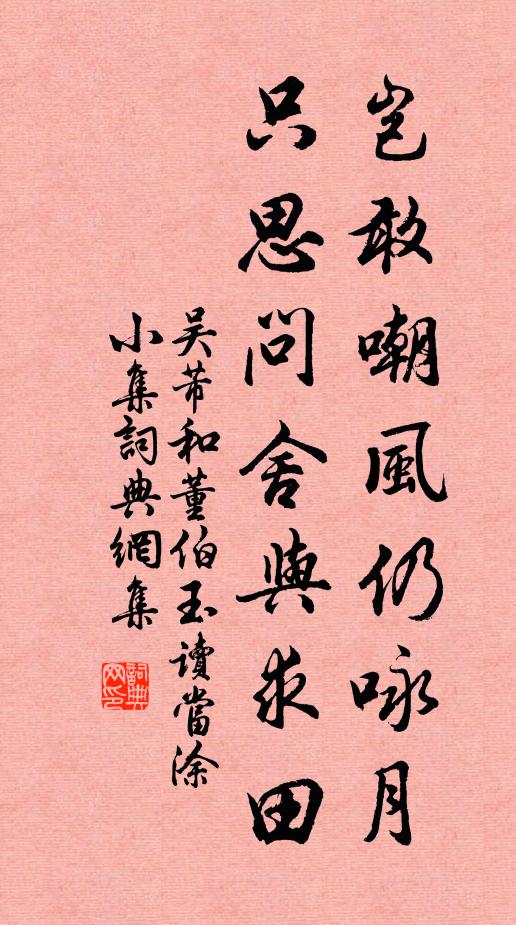 豈敢嘲風仍咏月
只思問舍與求田
吴芾和董伯玉讀當涂
小集詞典網集
詞典網印